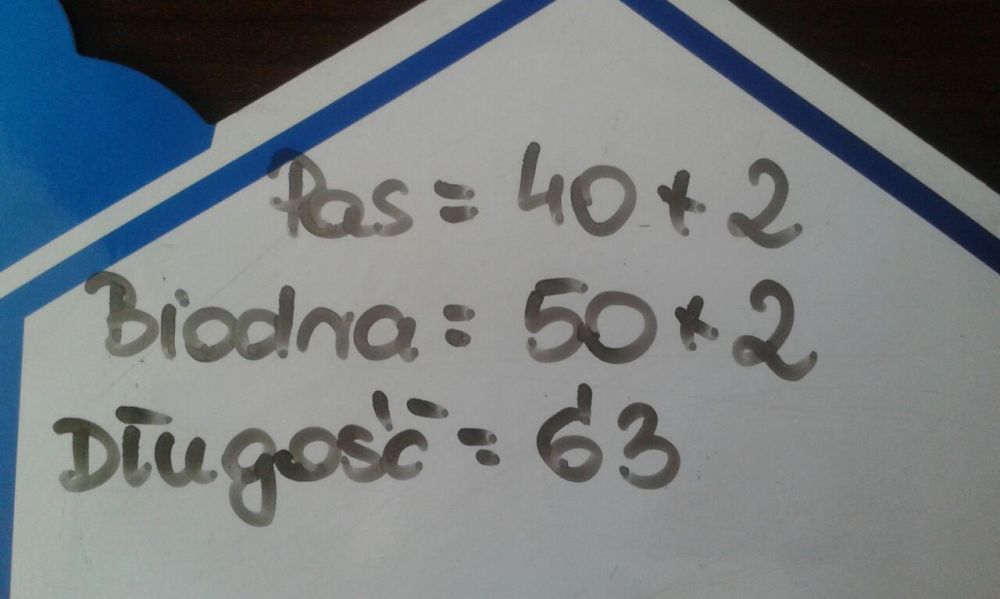 Pas = 40 * 2
Biodra = 50 * 2
Długość = 63